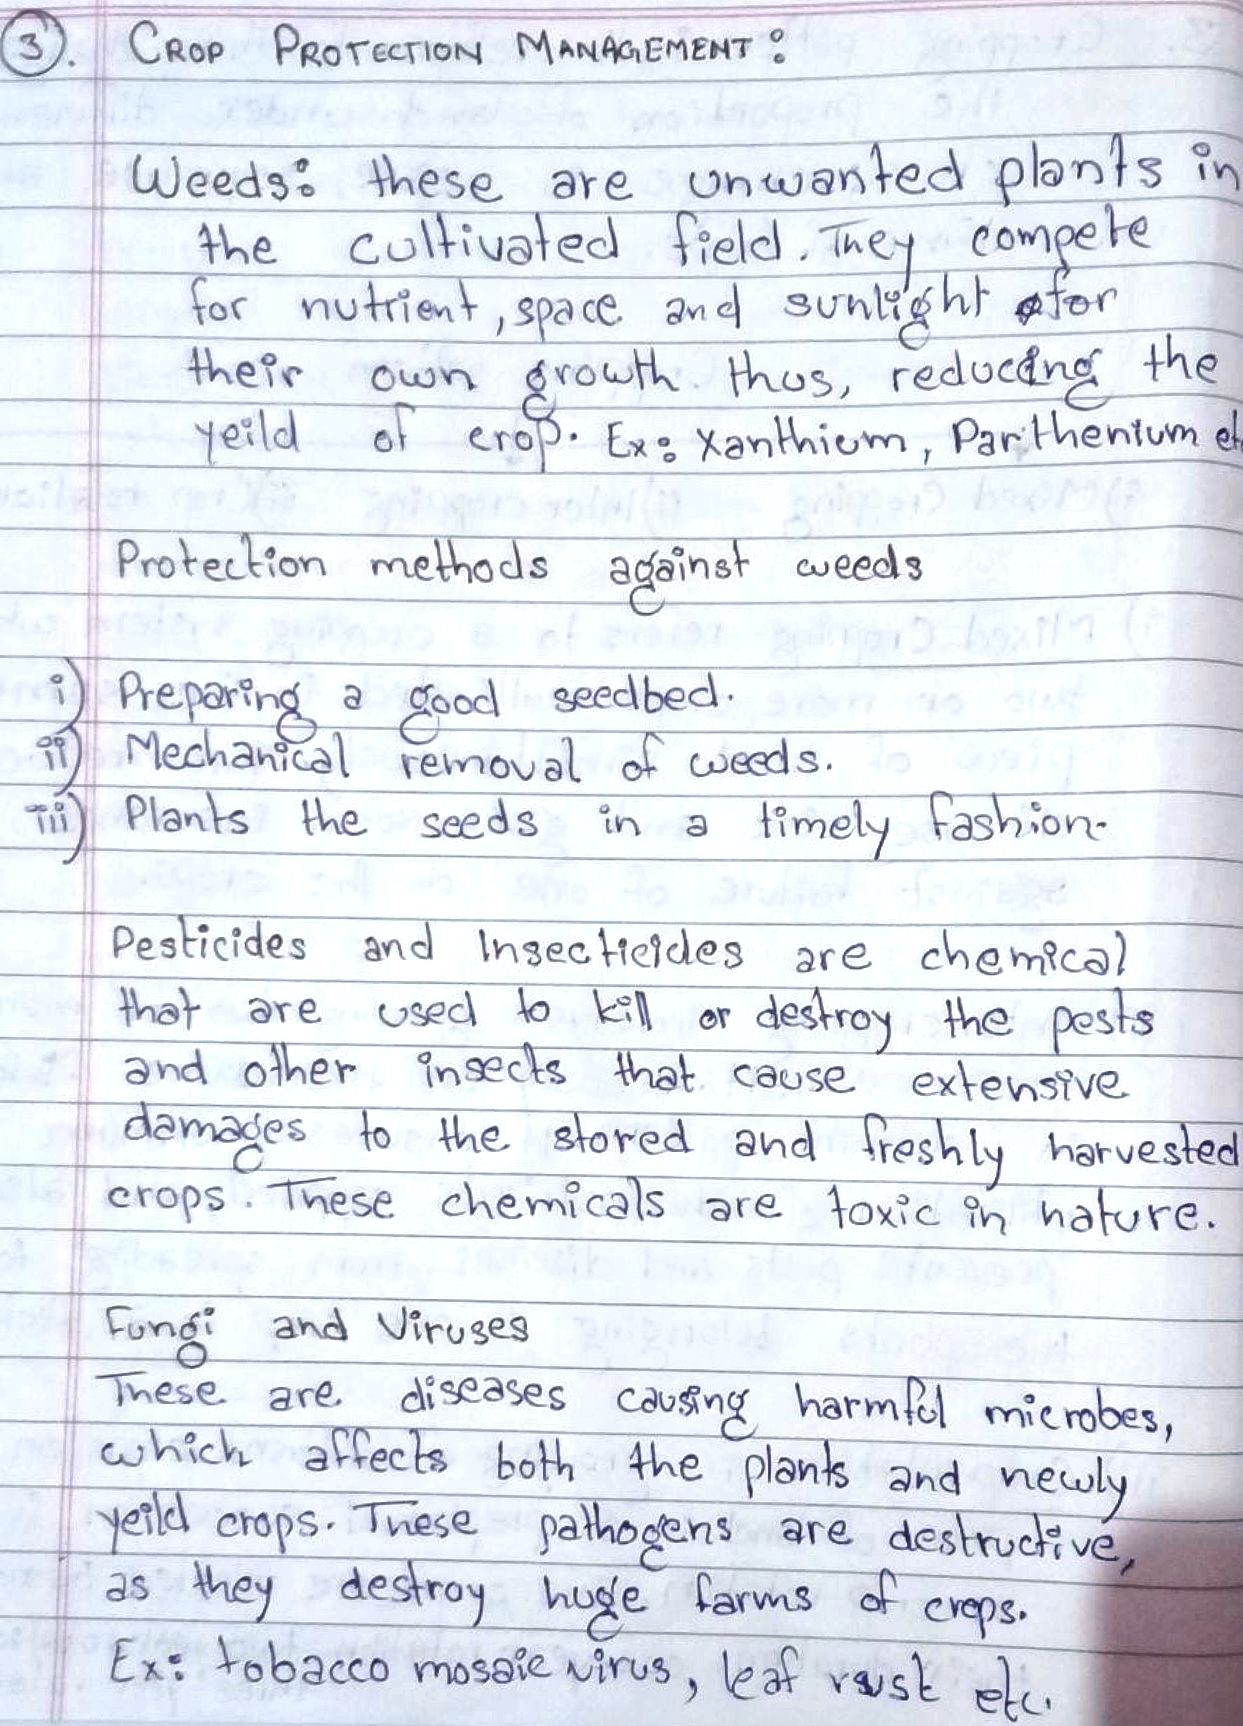 3. CROP PROTECTION MANAGEMENT:
Weeds: these are unwanted plants in
the cultivated field. They compete
for nutrient, space and sunlight for
their own growth. thus, reducing the
yeild of crop. Ex: Xanthium, Parthenium etc
Protection methods against weeds
i) Preparing a good seedbed.
ii) Mechanical removal of weeds.
iii) Plants the seeds in a timely fashion.
Pesticides and Insecticides are chemical
that are used to kill or destroy the pests
and other insects that cause extensive
damages to the stored and freshly harvested
crops. These chemicals are toxic in nature.
Fungi and Viruses
These are diseases causing harmful microbes,
which affects both the plants and newly
yeild crops. These pathogens are destructive,
as they destroy huge farms of crops.
Ex: tobacco mosaic virus, leaf rust etc.